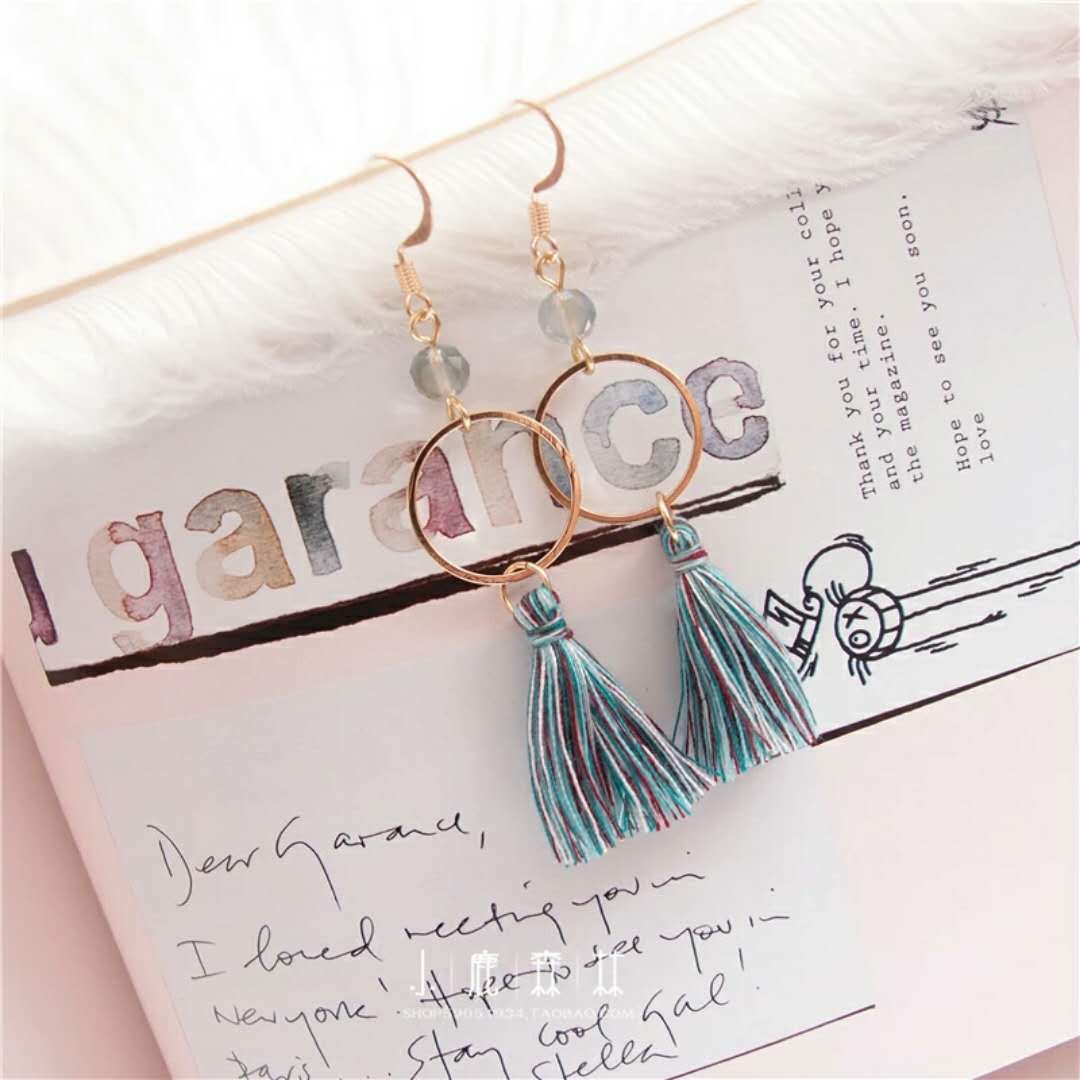 garance
Thank you for your colli
and your time. I hope y
the magazine.
Hope to see you soon.
love
Dear Garance,
I loved meeting you in
New york! Hope to see you in
Paris... Stay cool Gal!
Stella
小鹿森林
.TAOBAO.COM